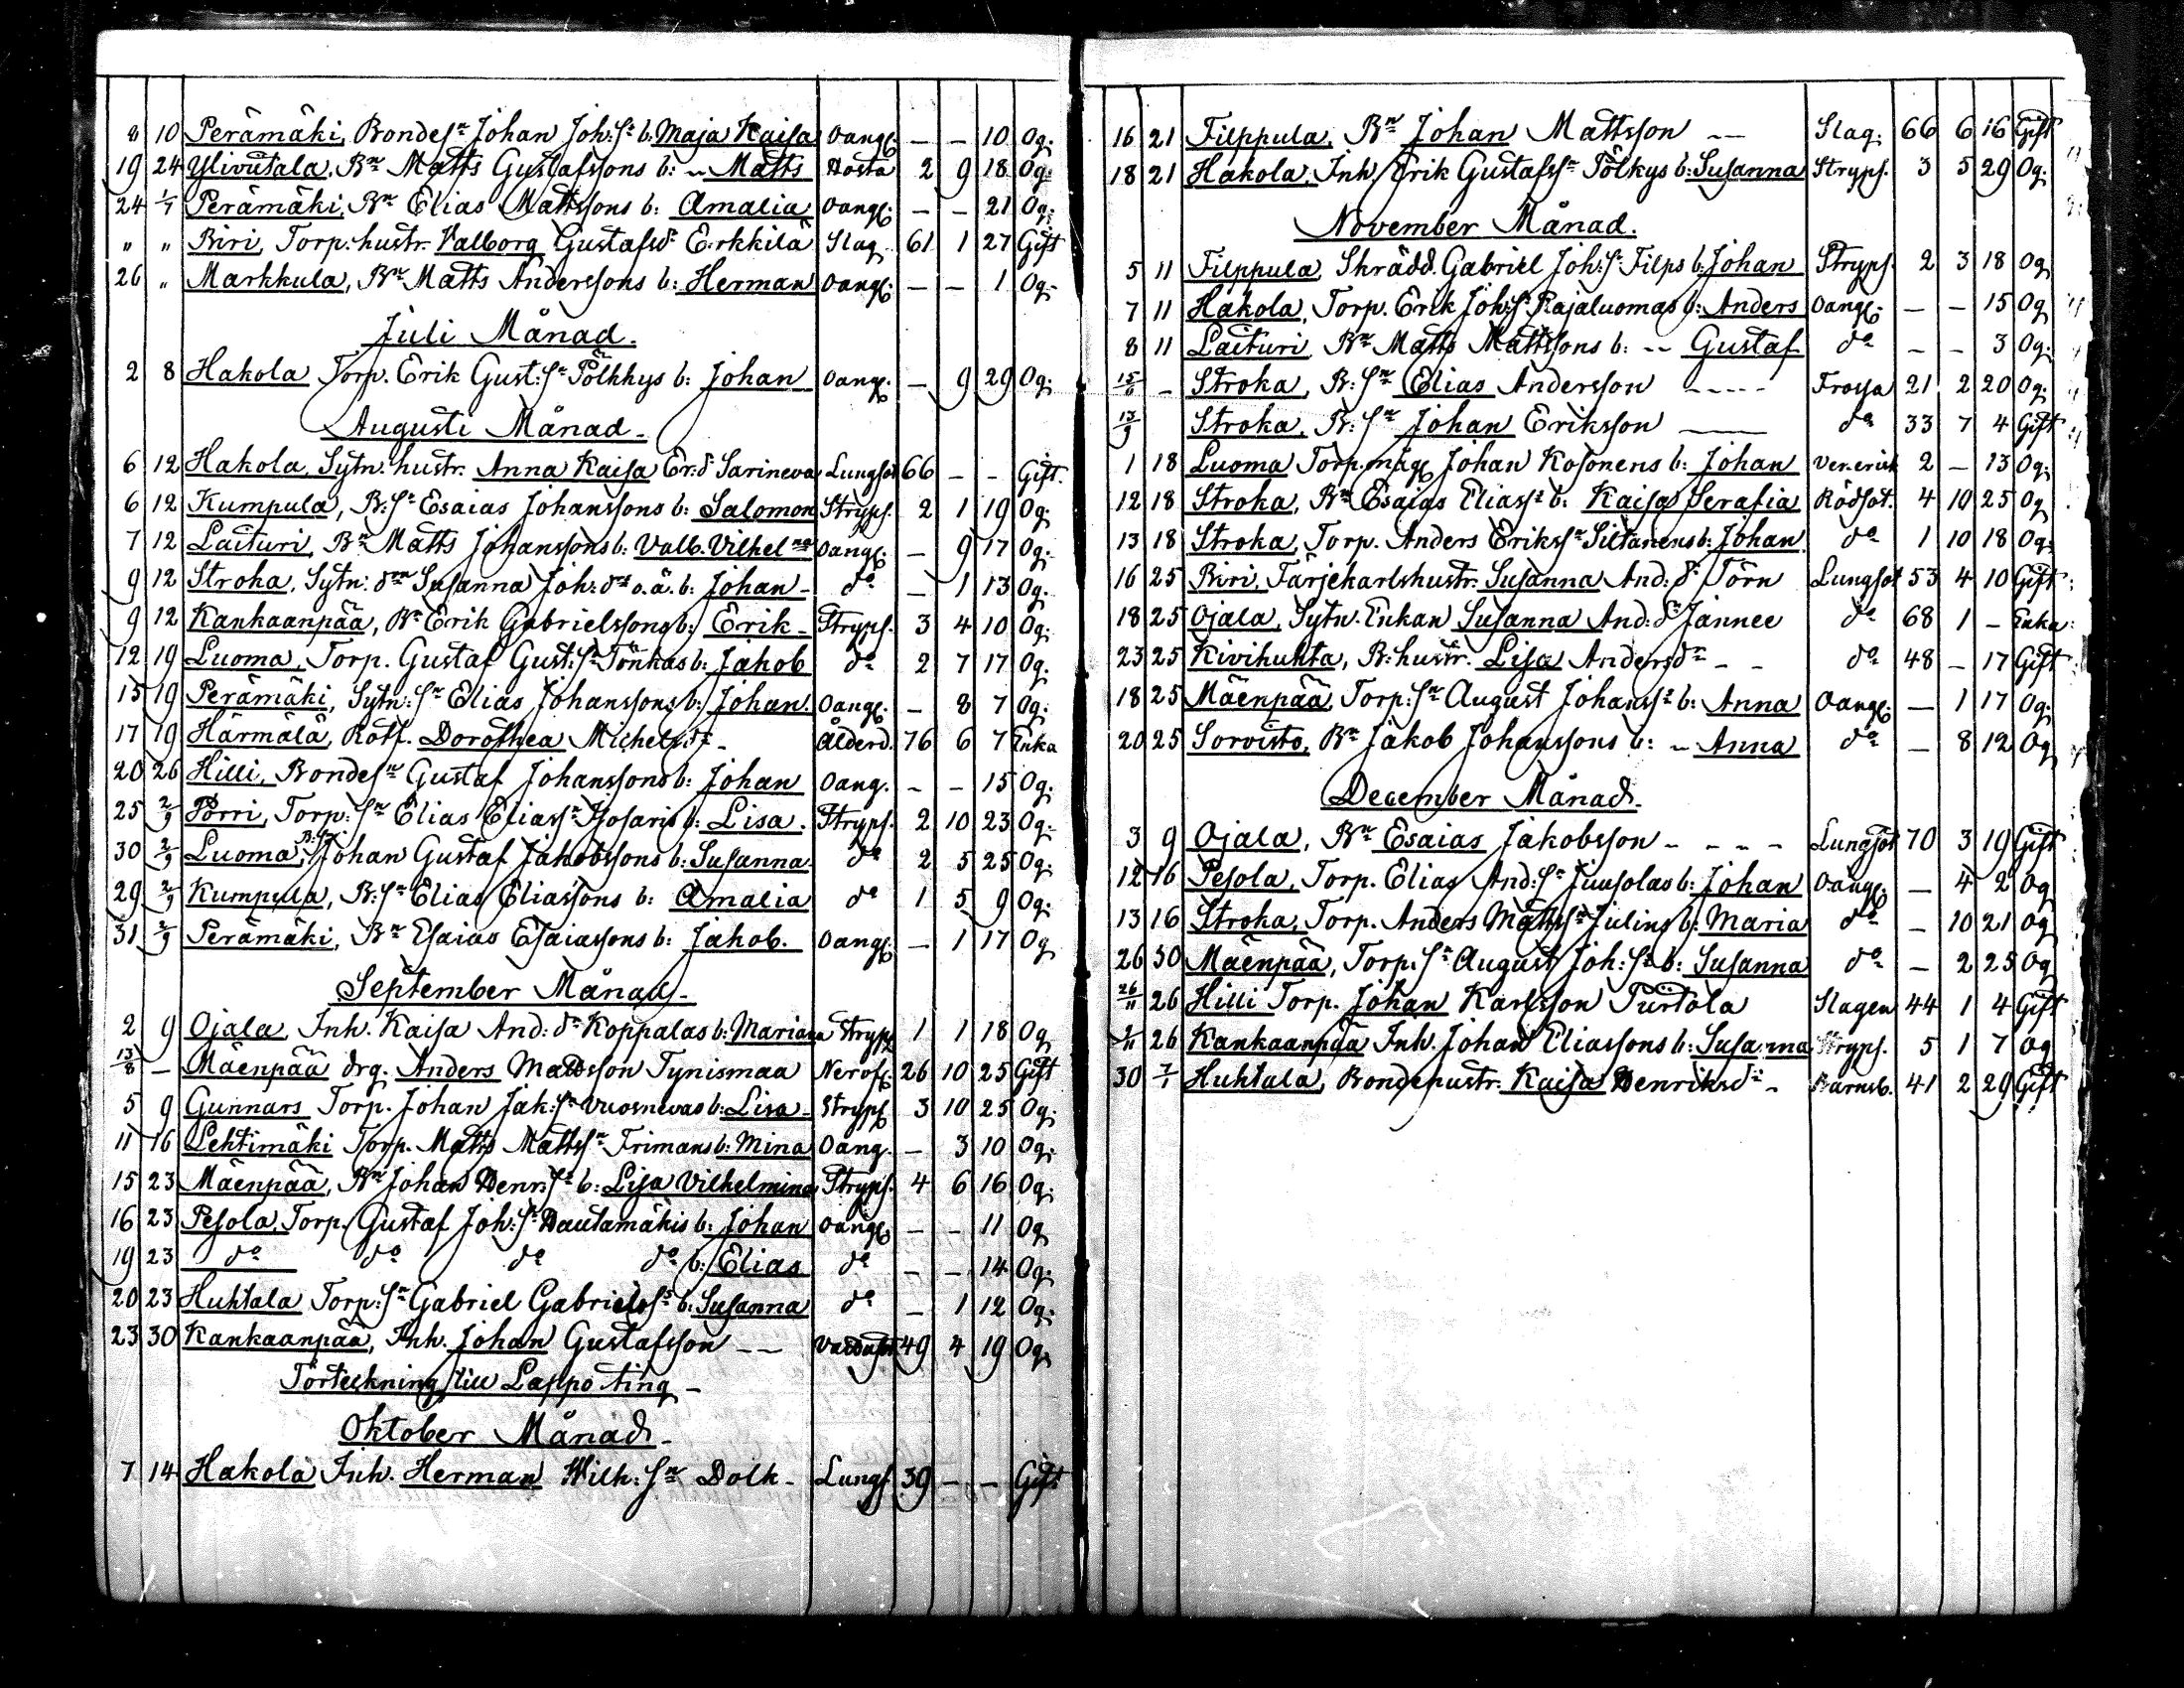 8 10 Perämäki, Bondesn Johan Joh:sns b: Maja Kaisa Oang. — — 10 Og.
19 24 Yliviitala, Bn Matts Gustafssons b: Matts Hosta 2 9 18 Og.
24 1/7 Perämäki, Bn Elias Mattssons b: Amalia Oang. — — 21 Og.
" " Biri, Torp. hustr. Valborg Gustafsdr Erkkilä Slag. 61 1 27 Gift
26 " Markkula, Bn Matts Anderssons b: Herman Oang. — — 1 Og.
Juli Månad.
2 8 Hakola Torp. Erik Gust:sn Pölkkys b: Johan Oang. — 9 29 Og.
Augusti Månad.
6 12 Hakola, Sytn. hustr. Anna Kaisa Er:dr Sarineva Lungsot 66 — — Gift.
6 12 Kumpula, B:sn Esaias Johanssons b: Salomon Stryps. 2 1 19 Og.
7 12 Laituri, Bn Matts Johanssons b: Valb. Vilhelma Oang. — 9 17 Og.
9 12 Stroka, Sytn: drn Susanna Joh:drs o.ä. b: Johan do — 1 13 Og.
9 12 Kankaanpää, Bn Erik Gabrielssons b: Erik Stryps. 3 4 10 Og.
12 19 Luoma, Torp. Gustaf Gust:sn Tönkäs b: Jakob do 2 7 17 Og.
15 19 Perämäki, Sytn:sn Elias Johanssons b: Johan Oang. — 8 7 Og.
17 19 Härmälä, Rotf. Dorothea Michelsdr Ålderd. 76 6 7 Enka
20 26 Hilli, Bondesn Gustaf Johanssons b: Johan Oang. — — 15 Og.
25 2/9 Porri, Torp:sn Elias Eliassn Isosaris b: Lisa. Stryps. 2 10 23 Og.
30 2/9 Luoma, B:sn Johan Gustaf Jakobssons b: Susanna do 2 5 25 Og.
29 2/9 Kumpula, B:sn Elias Eliassons b: Amalia do 1 5 9 Og.
31 2/9 Perämäki, Bn Esaias Esaiassons b: Jakob. Oang. — 1 17 Og
September Månad.
2 9 Ojala, Inh. Kaisa And:dr Koppalas b: Mariana Stryps 1 1 18 Og
13/8 — Mäenpää drg. Anders Mattsson Tynismaa Nerof. 26 10 25 Gift
5 9 Gunnars Torp. Johan Jak:sn Vuosnevas b: Lisa Stryps 3 10 25 Og.
11 16 Lehtimäki Torp. Matts Mattssn Frimans b: Mina Oang. — 3 10 Og.
15 23 Mäenpää, Bn Johan Henr:sn b: Lisa Vilhelmina Stryps. 4 6 16 Og.
16 23 Pesola, Torp. Gustaf Joh:sn Hautamäkis b: Johan Oang. — — 11 Og
19 23 do do do do b: Elias do — — 14 Og.
20 23 Huhtala Torp:sn Gabriel Gabrielssn b: Susanna do — 1 12 Og.
23 30 Kankaanpää, Inh. Johan Gustafsson Vattusot 49 4 19 Og
Förteckning till Lappo ting
Oktober Månad
7 14 Hakola Inh. Herman Wilh:sn Dolk Lungs. 39 — — Gift
16 21 Filppula, Bn Johan Mattsson Slag. 66 6 16 Gift
18 21 Hakola, Inh. Erik Gustafssn Pölkys b: Susanna Stryps. 3 5 29 Og.
November Månad.
5 11 Filppula, Skrädd. Gabriel Joh:sn Filps b: Johan Stryps. 2 3 18 Og
7 11 Hakola, Torp. Erik Joh:sn Rajaluomas b: Anders Oang. — — 15 Og
8 11 Laituri Bn Matts Mattssons b: Gustaf do — — 3 Og.
15/6 — Stroka, B:sn Elias Andersson Frossa 21 2 20 Og.
13/9 Stroka, B:sn Johan Eriksson do 33 7 4 Gift
1 18 Luoma Torp.måg Johan Kosonens b: Johan Ven.erisk 2 — 13 Og.
12 18 Stroka, Bn Esaias Eliassn b: Kaisa Serafia Rödsot. 4 10 25 Og
13 18 Stroka, Torp. Anders Erikssn Siltanens b: Johan do 1 10 18 Og.
16 25 Biri, Färjekarlshustr. Susanna And:dr Törn Lungsot 53 4 10 Gift
18 25 Ojala, Sytn. Enkan Susanna And:dr Jannee do 68 1 — Enka
23 25 Kivihuhta, B:hustr. Lisa Andersdr do 48 — 17 Gift
18 25 Mäenpää, Torp:sn August Johanssn b: Anna Oang. — 1 17 Og.
20 25 Sorvisto, Bn Jakob Johanssons b: Anna do — 8 12 Og
December Månad.
3 9 Ojala, Bn Esaias Jakobsson Lungsot 70 3 19 Gift
12 16 Pesola, Torp. Elias And:sn Juusolas b: Johan Oang. — 4 2 Og
13 16 Stroka, Torp. Anders Mattssn Julins b: Maria do — 10 21 Og
26 30 Mäenpää, Torp:sn August Joh:sn b: Susanna do — 2 25 Og
26/11 26 Hilli Torp. Johan Karlsson Turtola Slagen 44 1 4 Gift
26 Kankaanpää Inh. Johan Eliassons b: Susanna Stryps. 5 1 7 Og
30 7/1 Huhtala, Bondehustr. Kaisa Henriksdr Barnsb. 41 2 29 Gift